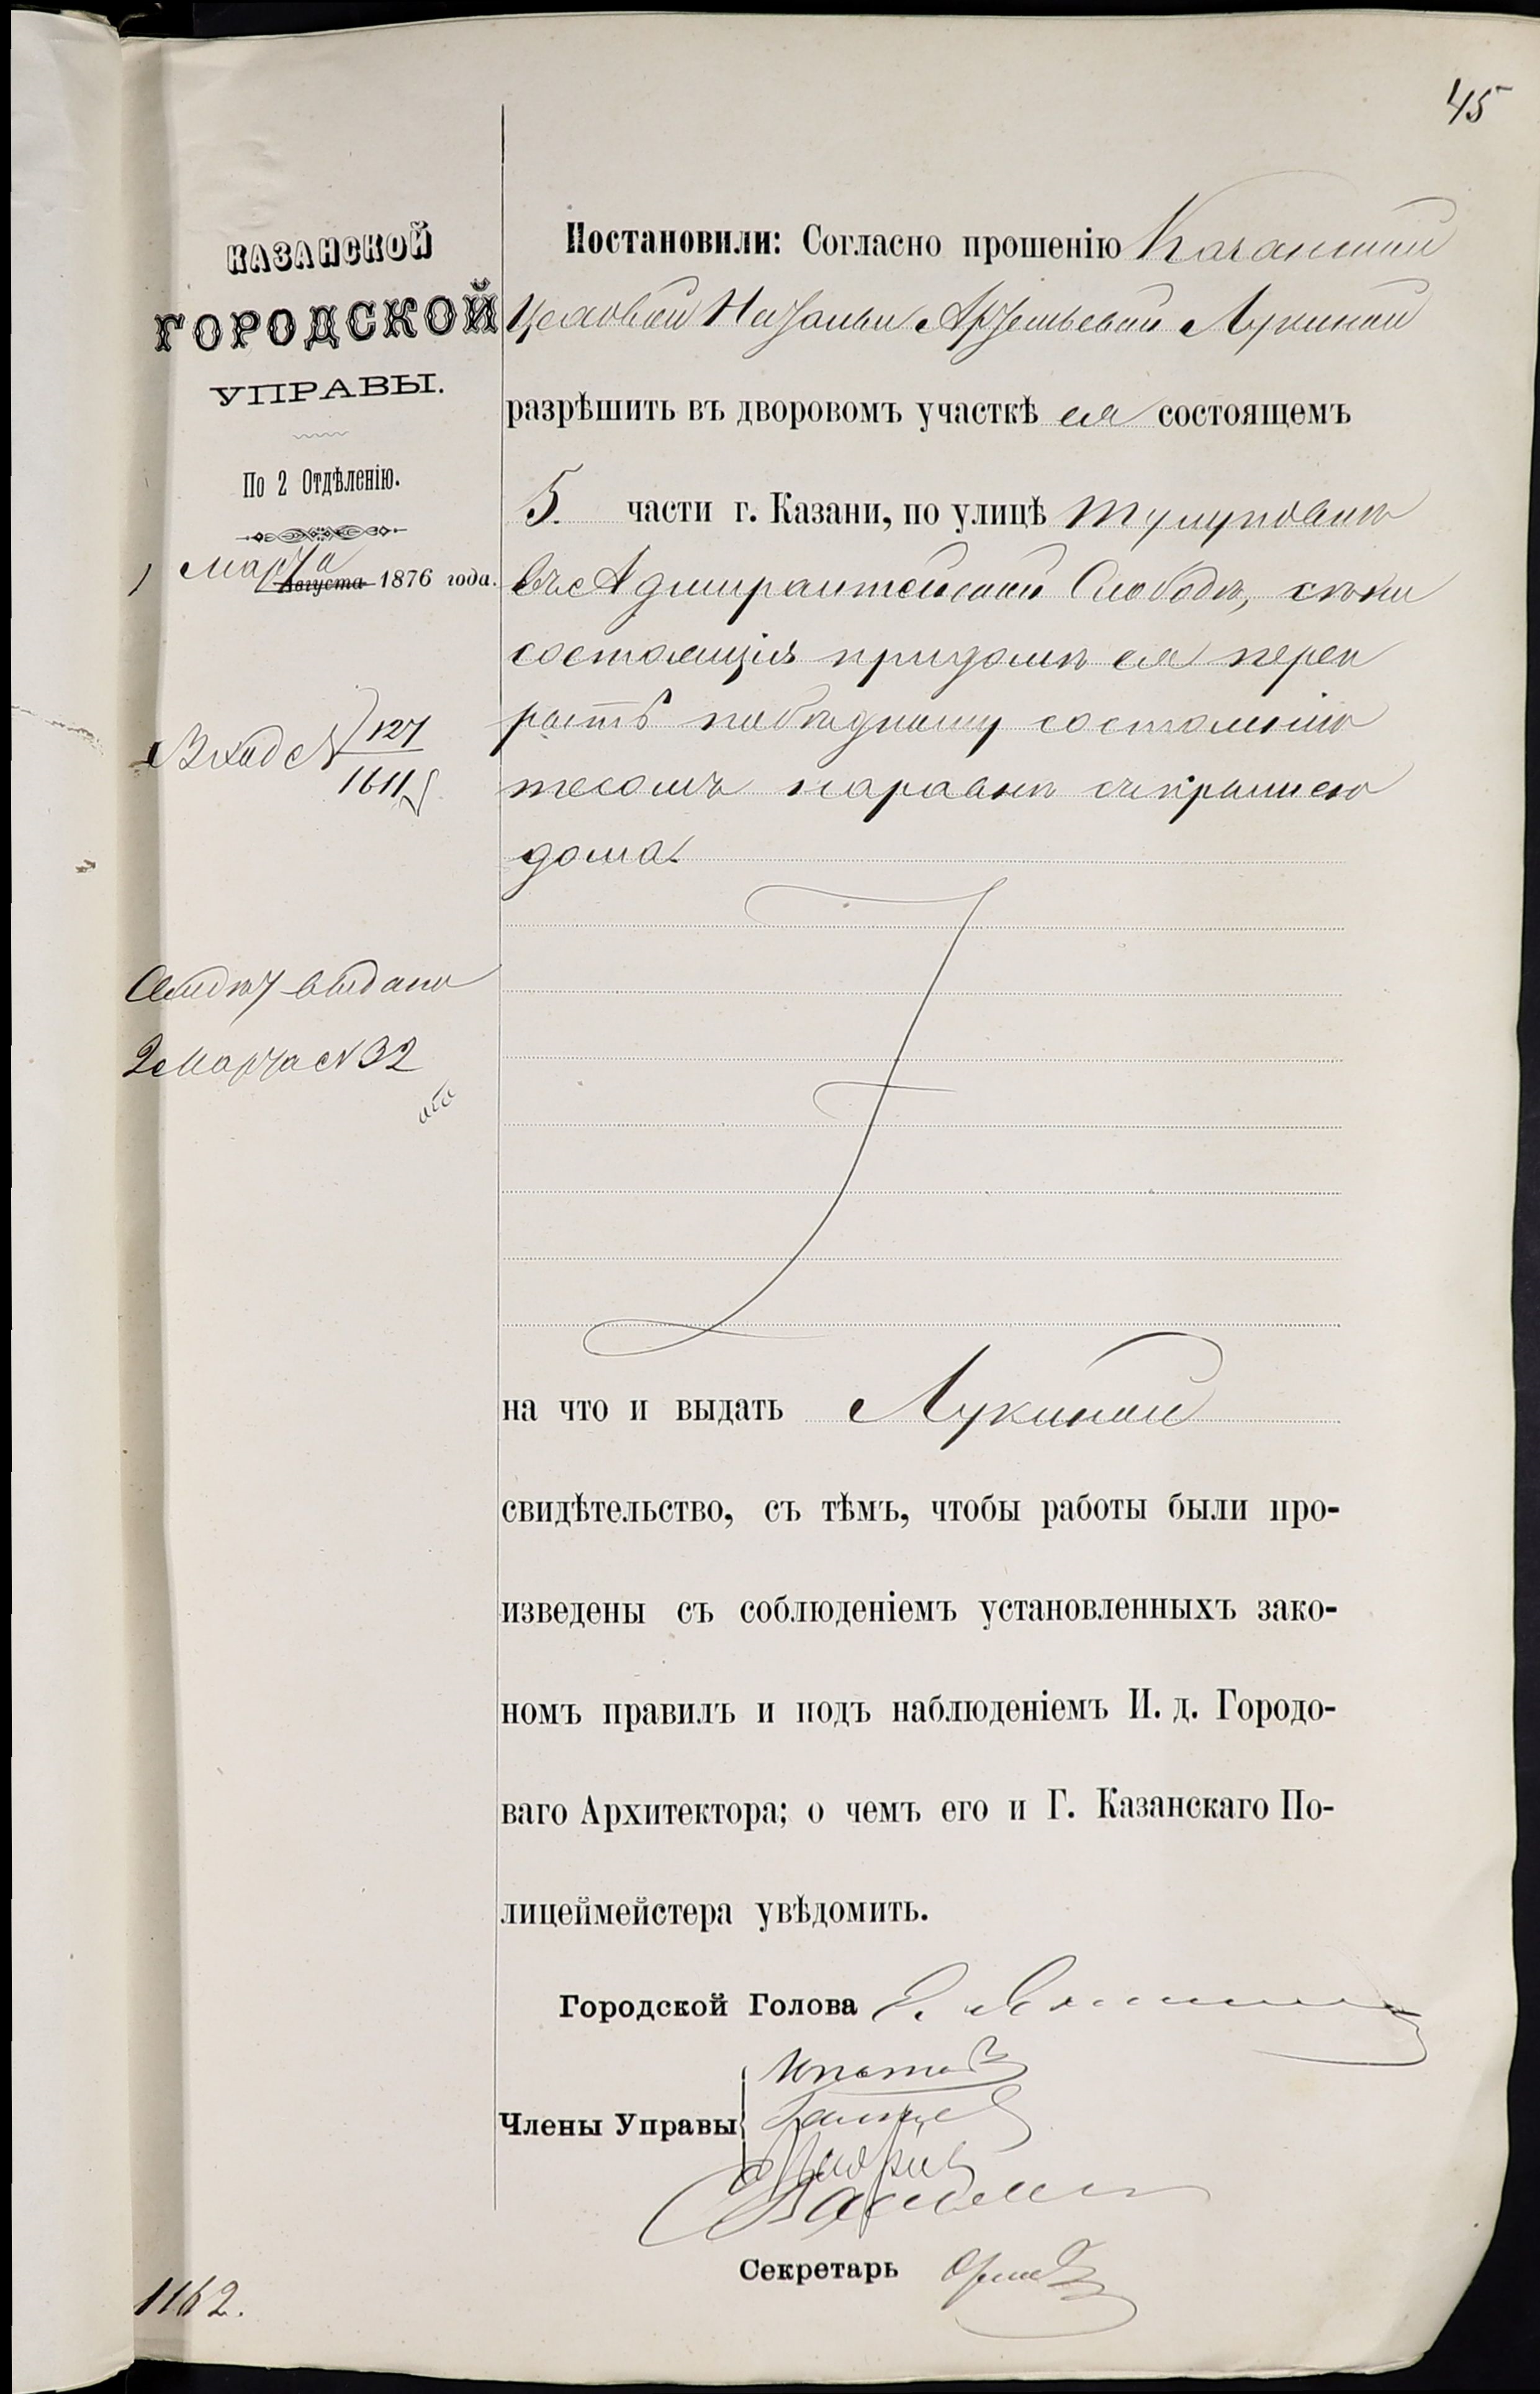 45
КАЗАНСКОЙ
ГОРОДСКОЙ
УПРАВЫ.
По 2 Отдѣленію.
1 Марта Августа 1876 года.
Вход № 127
1611
Свидѣт выдано
2 Марта № 32
Постановили: Согласно прошенію Казанской
Цеховой Натальи Артемьевой Лукиной
разрѣшить въ дворовомъ участкѣ ея состоящемъ
5. части г. Казани, по улицѣ
въ Адмиралтейской Слободѣ, сѣни
состоящія при домѣ ея перек
рыть по бѣдному состоянію
тесомъ наравнѣ съ крышею
дома.
на что и выдать Лукиной
свидѣтельство, съ тѣмъ, чтобы работы были про-
изведены съ соблюденіемъ установленныхъ зако-
номъ правилъ и подъ наблюденіемъ И. д. Городо-
ваго Архитектора; о чемъ его и Г. Казанскаго По-
лицеймейстера увѣдомить.
Городской Голова
Члены Управы
Секретарь
1162.